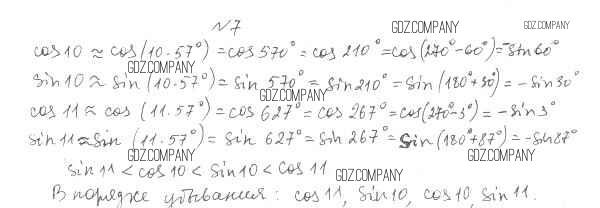 N7
GDZ.COMPANY GDZ.COMPANY
cos10 ≈ cos(10·57°) = cos570° = cos 210° = cos(270°-60°) = -sin60°
GDZ.COMPANY
sin10 ≈ sin(10·57°) = sin 570° = sin210° = sin(180°+30°) = -sin30°
GDZ.COMPANY
cos 11 ≈ cos (11·57°) = cos 627° = cos 267° = cos(270°-3°) = -sin3°
sin11 ≈ sin (11·57°) = sin 627° = sin 267° = sin(180°+87°) = -sin87°
GDZ.COMPANY GDZ.COMPANY
sin11 < cos10 < sin10 < cos 11
GDZ.COMPANY
В порядке убывания: cos11, sin10, cos10, sin11.